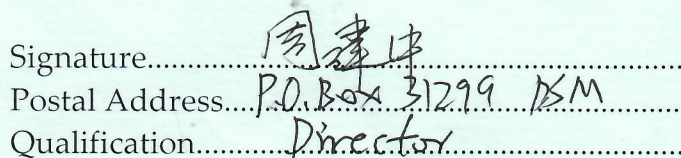 Signature......周建中......
Postal Address....P.O. Box 31299 DSM......
Qualification......Director......